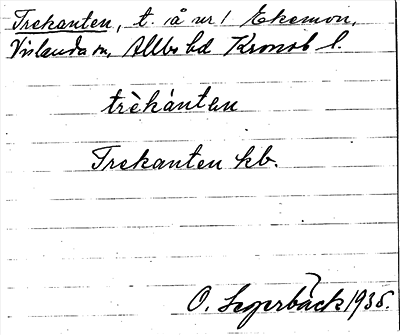 Trekanten, t. å nr 1 Ekemon,
Vislanda sn, Allbo hd Kronob l.
trèkánten
Trekanten kb.
O. Segerbäck 1935.